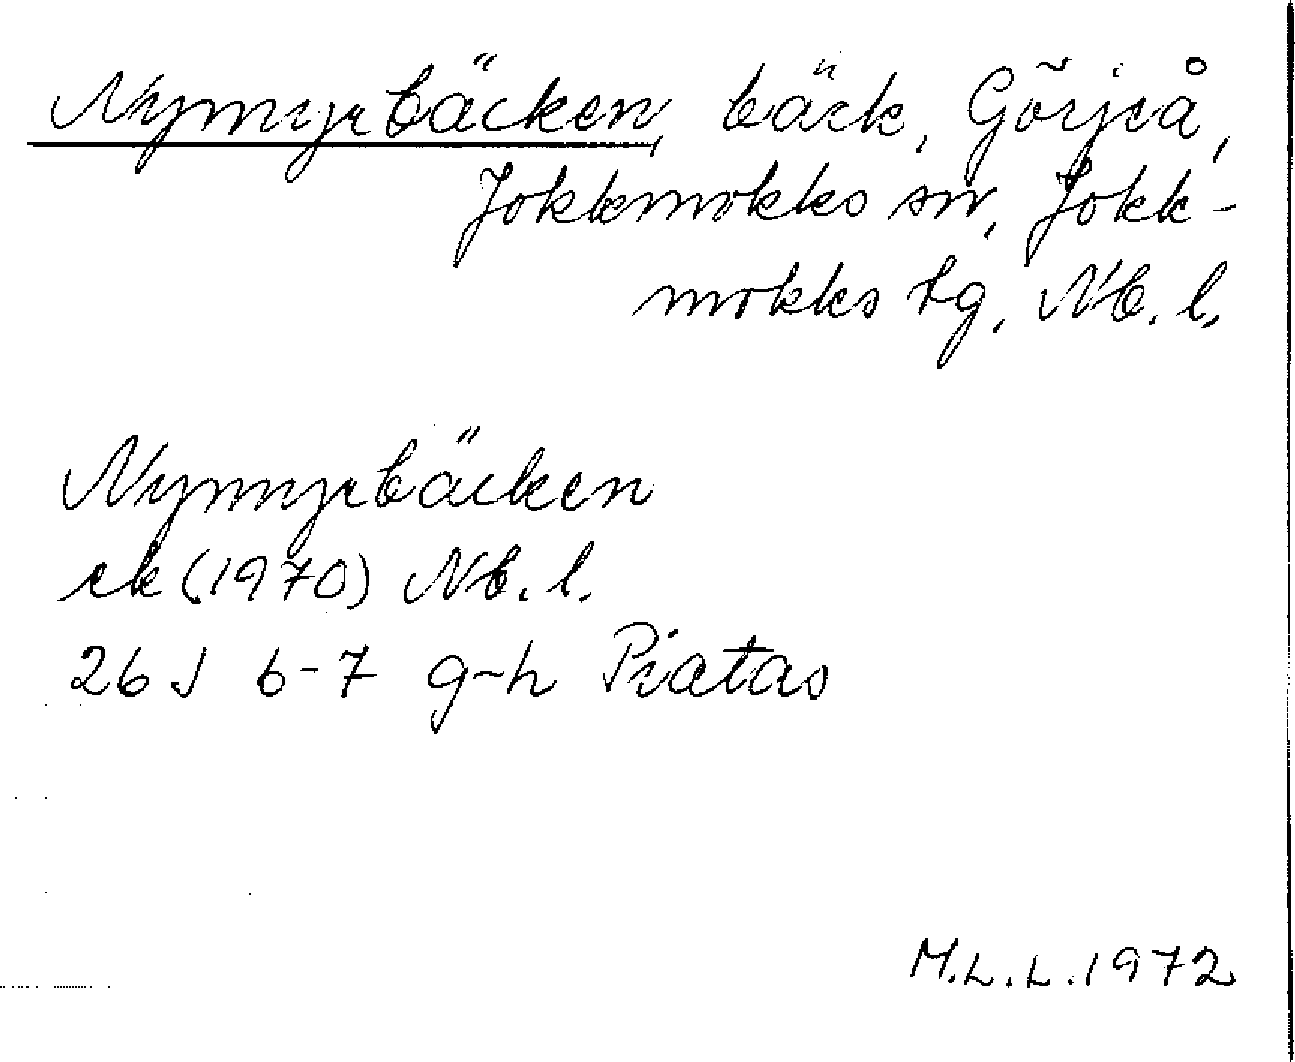 Nymyrbäcken, bäck, Görjeå,
Jokkmokks sn, Jokk-
mokks tg, Nb. l.
Nymyrbäcken
ek (1970) Nb. l.
26 J 6-7 g-h Piatas
M.L.L. 1972